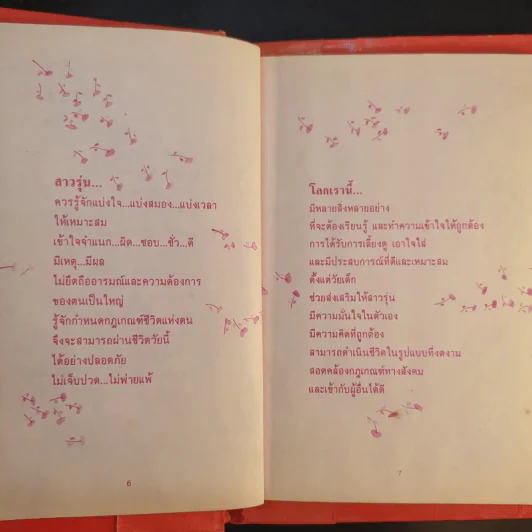 สาวรุ่น...
ควรรู้จักแบ่งใจ...แบ่งสมอง...แบ่งเวลา
ให้เหมาะสม
เข้าใจจำแนก...ผิด...ชอบ...ชั่ว...ดี
มีเหตุ...มีผล
ไม่ยึดถืออารมณ์และความต้องการ
ของตนเป็นใหญ่
รู้จักกำหนดกฎเกณฑ์ชีวิตแห่งตน
จึงจะสามารถผ่านชีวิตวัยนี้
ได้อย่างปลอดภัย
ไม่เจ็บปวด...ไม่พ่ายแพ้
6
โลกเรานี้...
มีหลายสิ่งหลายอย่าง
ที่จะต้องเรียนรู้ และทำความเข้าใจให้ถูกต้อง
การได้รับการเลี้ยงดู เอาใจใส่
และมีประสบการณ์ที่ดีและเหมาะสม
ตั้งแต่วัยเด็ก
ช่วยส่งเสริมให้สาวรุ่น
มีความมั่นใจในตัวเอง
มีความคิดที่ถูกต้อง
สามารถดำเนินชีวิตในรูปแบบที่งดงาม
สอดคล้องกฎเกณฑ์ทางสังคม
และเข้ากับผู้อื่นได้ดี
7